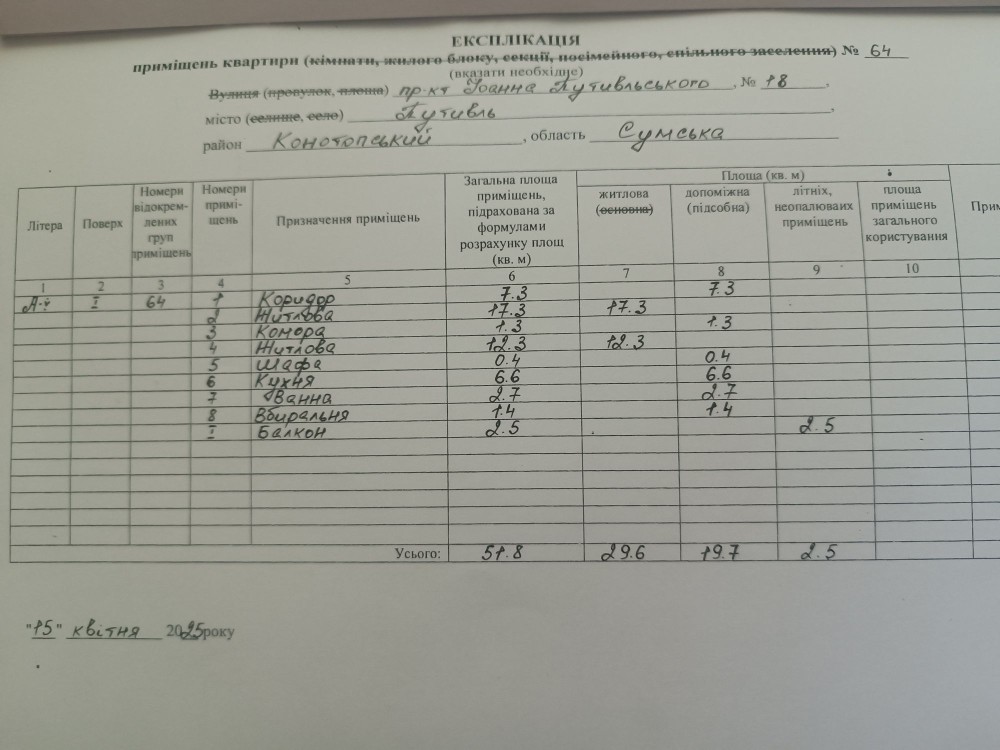 ЕКСПЛІКАЦІЯ
приміщень квартири (кімнати, жилого блоку, секції, посімейного, спільного заселення) № 64
(вказати необхідне)
Вулиця (провулок, площа) пр-кт Іоанна Путивльського, № 18,
місто (селище, село) Путивль,
район Конотопський, область Сумська
Літера Поверх Номери відокрем-лених груп приміщень Номери примі-щень Призначення приміщень Загальна площа приміщень, підрахована за формулами розрахунку площ (кв. м) Площа (кв. м)
житлова (основна) допоміжна (підсобна) літніх, неопалюваих приміщень площа приміщень загального користування
1 2 3 4 5 6 7 8 9 10
I 64 1 Коридор 7.3 7.3
2 Житлова 17.3 17.3
3 Комора 1.3 1.3
4 Житлова 12.3 12.3
5 Шафа 0.4 0.4
6 Кухня 6.6 6.6
7 Ванна 2.7 2.7
8 Вбиральня 1.4 1.4
I Балкон 2.5 2.5
Усього: 51.8 29.6 19.7 2.5
"15" квітня 2025 року